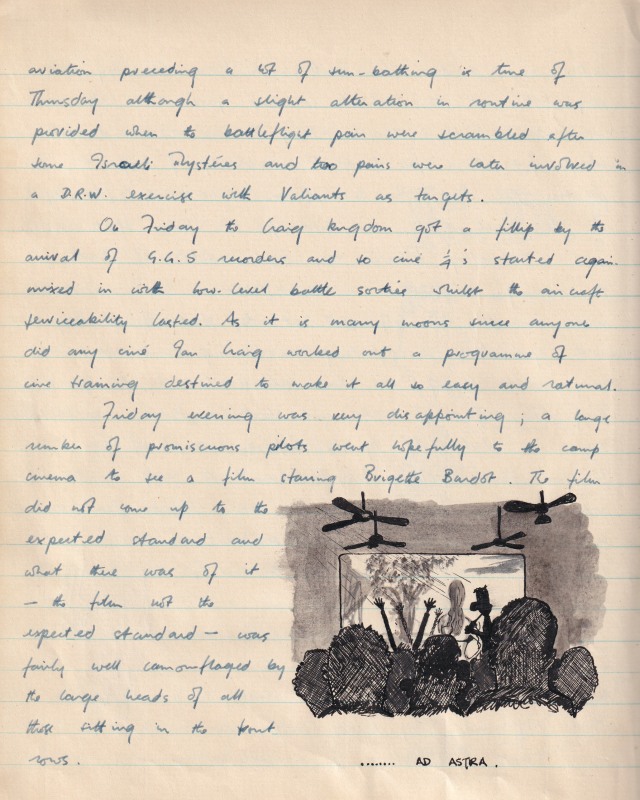 aviation preceding a lot of sun-bathing is true of
Thursday although a slight alteration in routine was
provided when the battleflight pair were scrambled after
some Israeli Mystères and two pairs were later involved in
a D.R.W. exercise with Valiants as targets.
On Friday the Craig kingdom got a fillip by the
arrival of G.G.S recorders and so ciné ¼'s started again
mixed in with low-level battle sorties whilst the aircraft
serviceability lasted. As it is many moons since anyone
did any ciné Ian Craig worked out a programme of
cine training destined to make it all so easy and natural.
Friday evening was very disappointing; a large
number of promiscuous pilots went hopefully to the camp
cinema to see a film staring Brigette Bardot. The film
did not come up to the
expected standard and
what there was of it
– the film not the
expected standard – was
fairly well camouflaged by
the large heads of all
those sitting in the front
rows.
........ AD ASTRA.